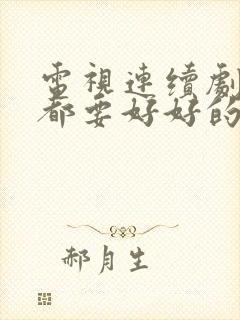 電視連續劇
都要好好的
郝月生